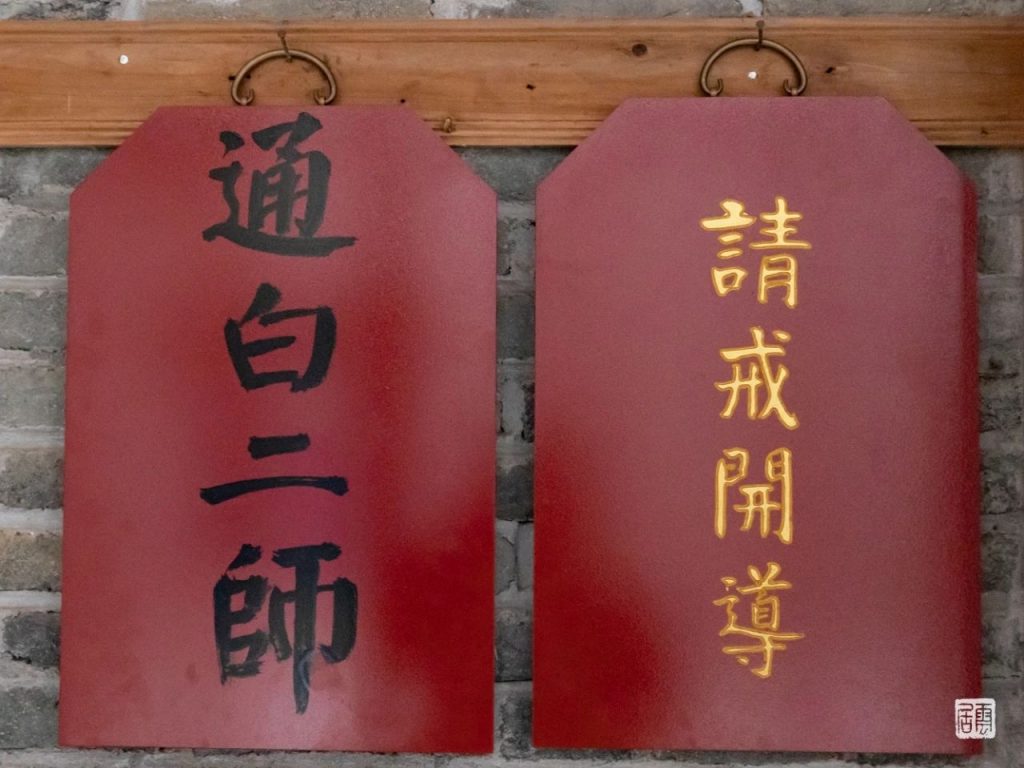 通白二師
請戒開導
雲居